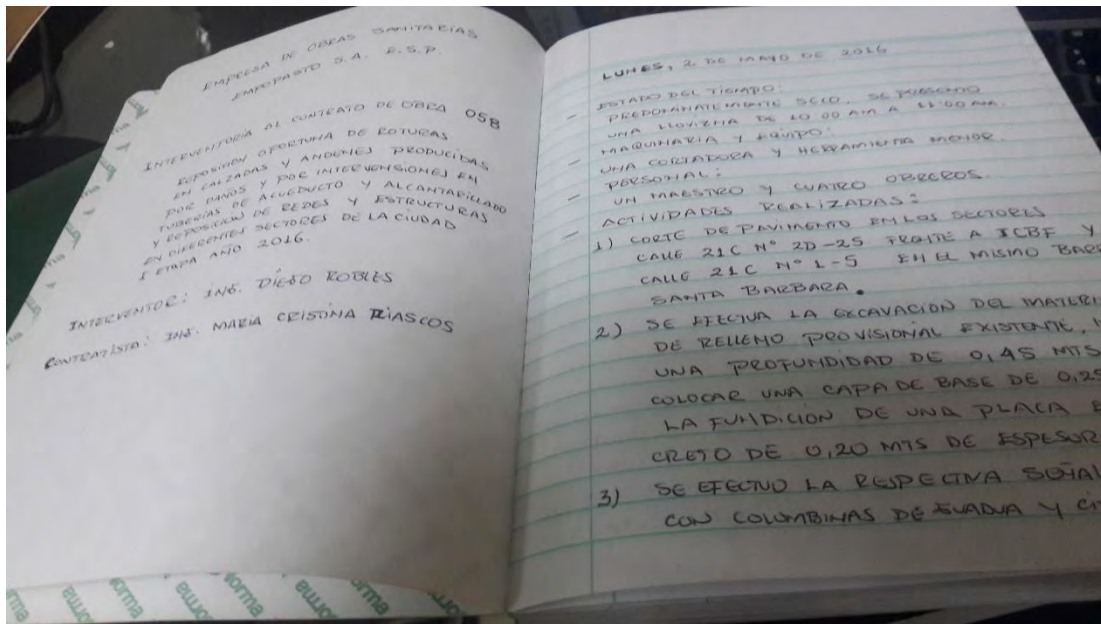 EMPRESA DE OBRAS SANITARIAS
EMPOPASTO S.A. E.S.P.
INTERVENTORIA AL CONTRATO DE OBRA 058
REPOSICION OPORTUNA DE ROTURAS
EN CALZADAS Y ANDENES PRODUCIDAS
POR DAÑOS Y POR INTERVENSIONES EN
TUBERIAS DE ACUEDUCTO Y ALCANTARILLADO
Y REPOSICION DE REDES Y ESTRUCTURAS
EN DIFERENTES SECTORES DE LA CIUDAD
I ETAPA AÑO 2016.
INTERVENTOR: ING. DIEGO ROBLES
CONTRATISTA: ING. MARIA CRISTINA RIASCOS
LUNES, 2 DE MAYO DE 2016
ESTADO DEL TIEMPO:
- PREDOMINATEMENTE SECO, SE PRESENTO
UNA LLOVIZNA DE 10:00 AM A 11:00 AM.
- MAQUINARIA Y EQUIPO:
UNA CORTADORA Y HERRAMIENTA MENOR.
- PERSONAL:
UN MAESTRO Y CUATRO OBREROS.
- ACTIVIDADES REALIZADAS:
1) CORTE DE PAVIMENTO EN LOS SECTORES
CALLE 21C N° 2D-25 FRENTE A ICBF Y
CALLE 21C N° 1-5 EN EL MISMO BARR
SANTA BARBARA.
2) SE EFECTUA LA EXCAVACION DEL MATERI
DE RELLENO PROVISIONAL EXISTENTE,
UNA PROFUNDIDAD DE 0,45 MTS
COLOCAR UNA CAPA DE BASE DE 0,25
LA FUNDICION DE UNA PLACA E
CRETO DE 0,20 MTS DE ESPESOR
3) SE EFECTUO LA RESPECTIVA SEÑAL
CON COLUMBINAS DE GUADUA Y CI
norma
norma
norma
norma